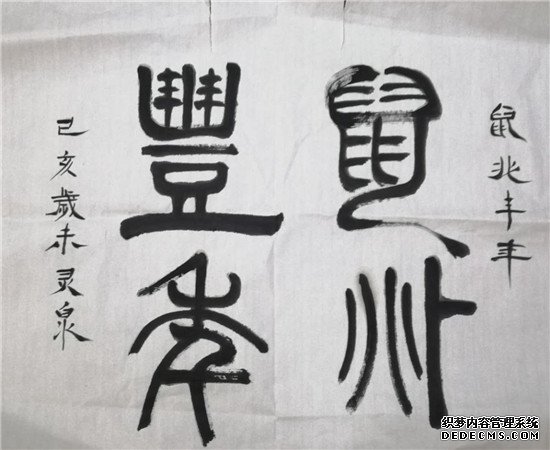 鼠兆丰年
鼠兆
豐年
己亥歲未灵泉
织梦内容管理系统
DEDECMS.COM